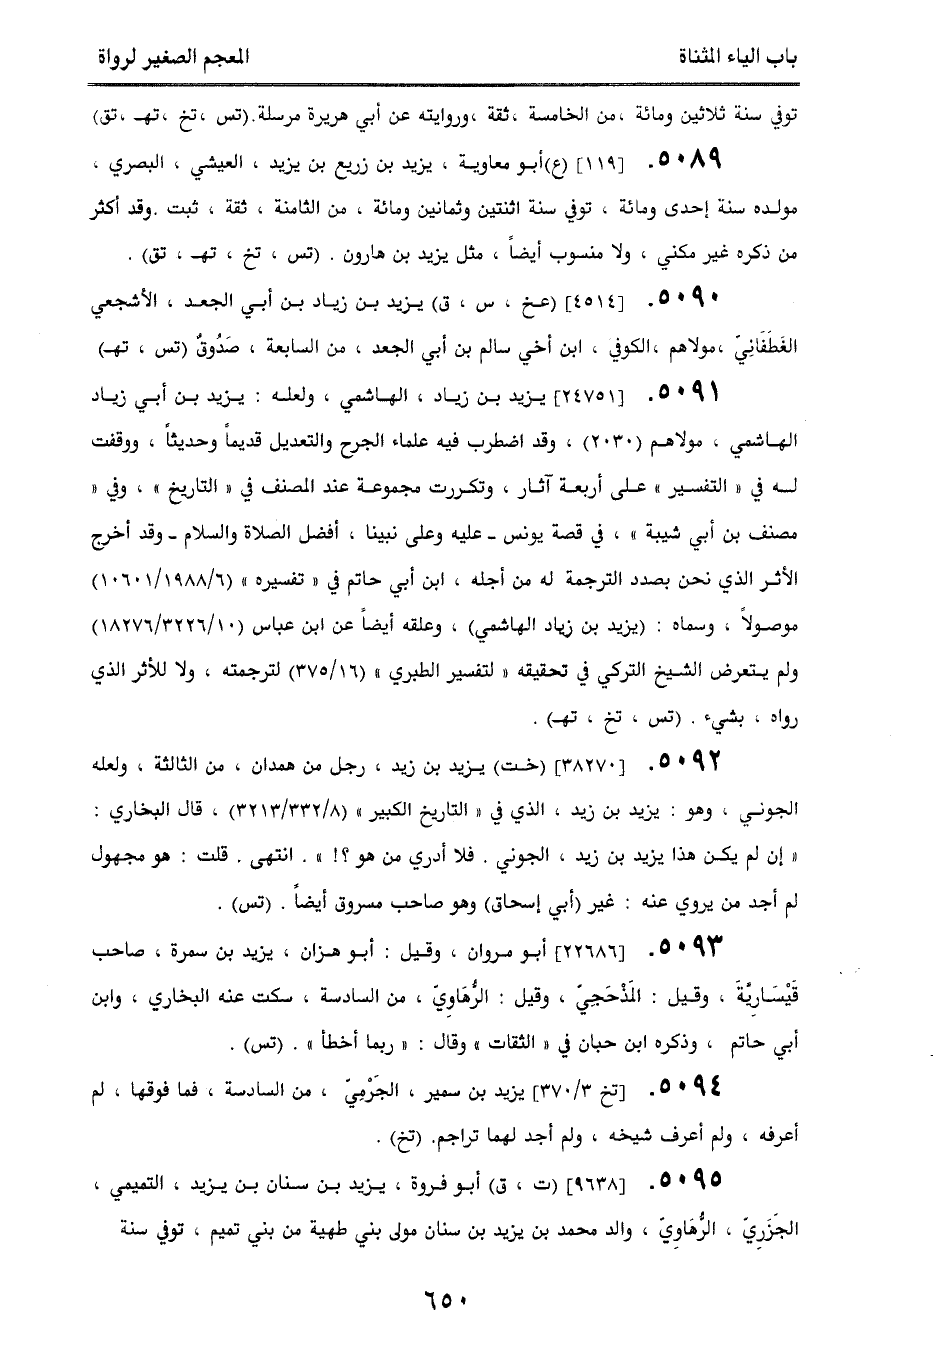 باب الياء المثناة
المعجم الصغير لرواة
توفي سنة ثلاثين ومائة ،من الخامسة ،ثقة ،وروايته عن أبي هريرة مرسلة.(تس ،تخ ،تهـ ،تق)
٥٠٨٩. [١١٩] (ع)أبو معاوية ، يزيد بن زريع بن يزيد ، العيشي ، البصري ،
مولده سنة إحدى ومائة ، توفي سنة اثنتين وثمانين ومائة ، من الثامنة ، ثقة ، ثبت .وقد أكثر
من ذكره غير مكني ، ولا منسوب أيضاً ، مثل يزيد بن هارون . (تس ، تخ ، تهـ ، تق) .
٥٠٩٠. [٤٥١٤] (عخ ، س ، ق) يزيد بن زياد بن أبي الجعد ، الأشجعي
الغَطَفَانِيّ ،مولاهم ،الكوفي ، ابن أخي سالم بن أبي الجعد ، من السابعة ، صَدُوقٌ (تس ، تهـ)
٥٠٩١. [٢٤٧٥١] يزيد بن زياد ، الهاشمي ، ولعله : يزيد بن أبي زياد
الهاشمي ، مولاهم (٢٠٣٠) ، وقد اضطرب فيه علماء الجرح والتعديل قديماً وحديثاً ، ووقفت
له في « التفسير » على أربعة آثار ، وتكررت مجموعة عند المصنف في « التاريخ » ، وفي «
مصنف بن أبي شيبة » ، في قصة يونس ـ عليه وعلى نبينا ، أفضل الصلاة والسلام ـ وقد أخرج
الأثر الذي نحن بصدد الترجمة له من أجله ، ابن أبي حاتم في « تفسيره » (١٠٦٠١/١٩٨٨/٦)
موصولاً ، وسماه : (يزيد بن زياد الهاشمي) ، وعلقه أيضاً عن ابن عباس (١٨٢٧٦/٣٢٢٦/١٠)
ولم يتعرض الشيخ التركي في تحقيقه « لتفسير الطبري » (٣٧٥/١٦) لترجمته ، ولا للأثر الذي
رواه ، بشيء . (تس ، تخ ، تهـ) .
٥٠٩٢. [٣٨٢٧٠] (خت) يزيد بن زيد ، رجل من همدان ، من الثالثة ، ولعله
الجوني ، وهو : يزيد بن زيد ، الذي في « التاريخ الكبير » (٣٢١٣/٣٣٢/٨) ، قال البخاري :
« إن لم يكن هذا يزيد بن زيد ، الجوني . فلا أدري من هو ؟! » . انتهى . قلت : هو مجهول
لم أجد من يروي عنه : غير (أبي إسحاق) وهو صاحب مسروق أيضاً . (تس) .
٥٠٩٣. [٢٢٦٨٦] أبو مروان ، وقيل : أبو هزان ، يزيد بن سمرة ، صاحب
قَيْسَارِيَّةَ ، وقيل : المَذْحَجِيّ ، وقيل : الرُّهَاوِيّ ، من السادسة ، سكت عنه البخاري ، وابن
أبي حاتم ، وذكره ابن حبان في « الثقات » وقال : « ربما أخطأ » . (تس) .
٥٠٩٤. [تخ ٣٧٠/٣] يزيد بن سمير ، الجَرْمِيّ ، من السادسة ، فما فوقها ، لم
أعرفه ، ولم أعرف شيخه ، ولم أجد لهما تراجم. (تخ) .
٥٠٩٥. [٩٦٣٨] (ت ، ق) أبو فروة ، يزيد بن سنان بن يزيد ، التميمي ،
الجَزَرِيّ ، الرُّهَاوِيّ ، والد محمد بن يزيد بن سنان مولى بني طهية من بني تميم ، توفي سنة
٦٥٠